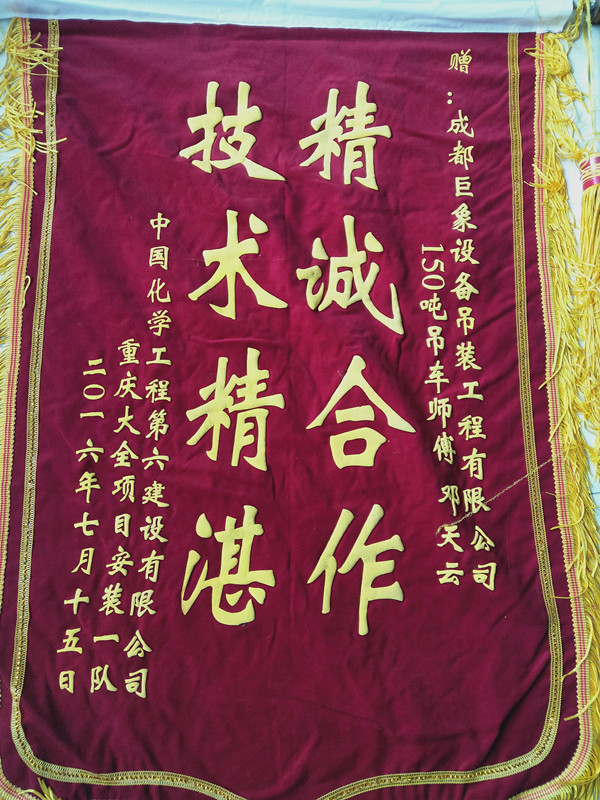 赠：成都巨象设备吊装工程有限公司
150吨吊车师傅 邓天云
精诚合作
技术精湛
中国化学工程第六建设有限公司
重庆大全项目安装一队
二〇一六年七月十五日